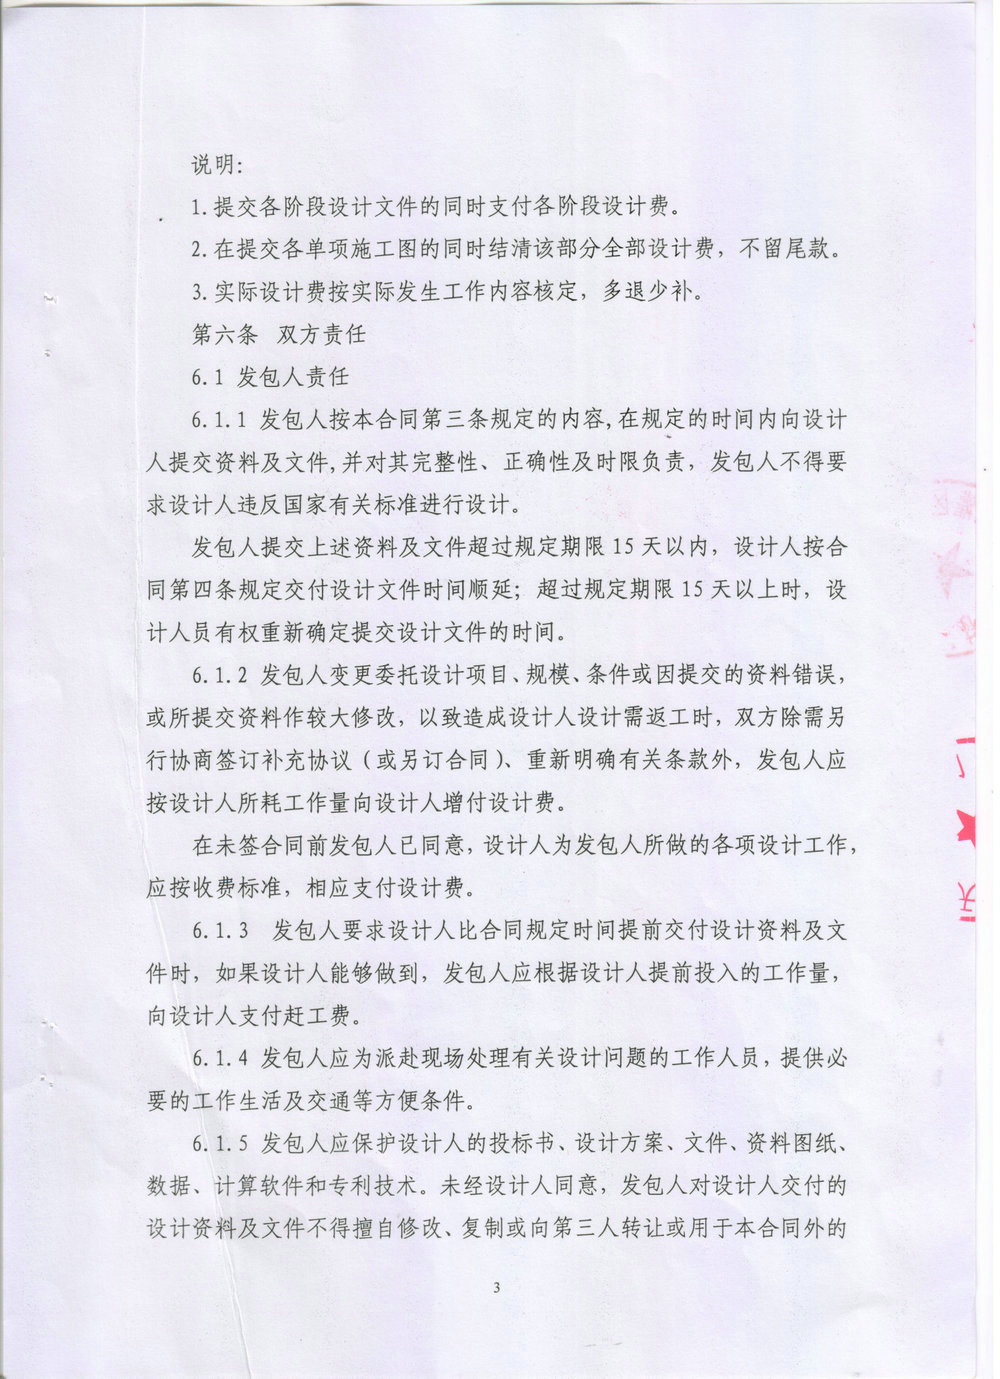 说明:
1.提交各阶段设计文件的同时支付各阶段设计费。
2.在提交各单项施工图的同时结清该部分全部设计费，不留尾款。
3.实际设计费按实际发生工作内容核定，多退少补。
第六条 双方责任
6.1 发包人责任
6.1.1 发包人按本合同第三条规定的内容,在规定的时间内向设计
人提交资料及文件,并对其完整性、正确性及时限负责，发包人不得要
求设计人违反国家有关标准进行设计。
发包人提交上述资料及文件超过规定期限 15 天以内，设计人按合
同第四条规定交付设计文件时间顺延；超过规定期限 15 天以上时，设
计人员有权重新确定提交设计文件的时间。
6.1.2 发包人变更委托设计项目、规模、条件或因提交的资料错误，
或所提交资料作较大修改，以致造成设计人设计需返工时，双方除需另
行协商签订补充协议（或另订合同）、重新明确有关条款外，发包人应
按设计人所耗工作量向设计人增付设计费。
在未签合同前发包人已同意，设计人为发包人所做的各项设计工作，
应按收费标准，相应支付设计费。
6.1.3 发包人要求设计人比合同规定时间提前交付设计资料及文
件时，如果设计人能够做到，发包人应根据设计人提前投入的工作量，
向设计人支付赶工费。
6.1.4 发包人应为派赴现场处理有关设计问题的工作人员，提供必
要的工作生活及交通等方便条件。
6.1.5 发包人应保护设计人的投标书、设计方案、文件、资料图纸、
数据、计算软件和专利技术。未经设计人同意，发包人对设计人交付的
设计资料及文件不得擅自修改、复制或向第三人转让或用于本合同外的
3